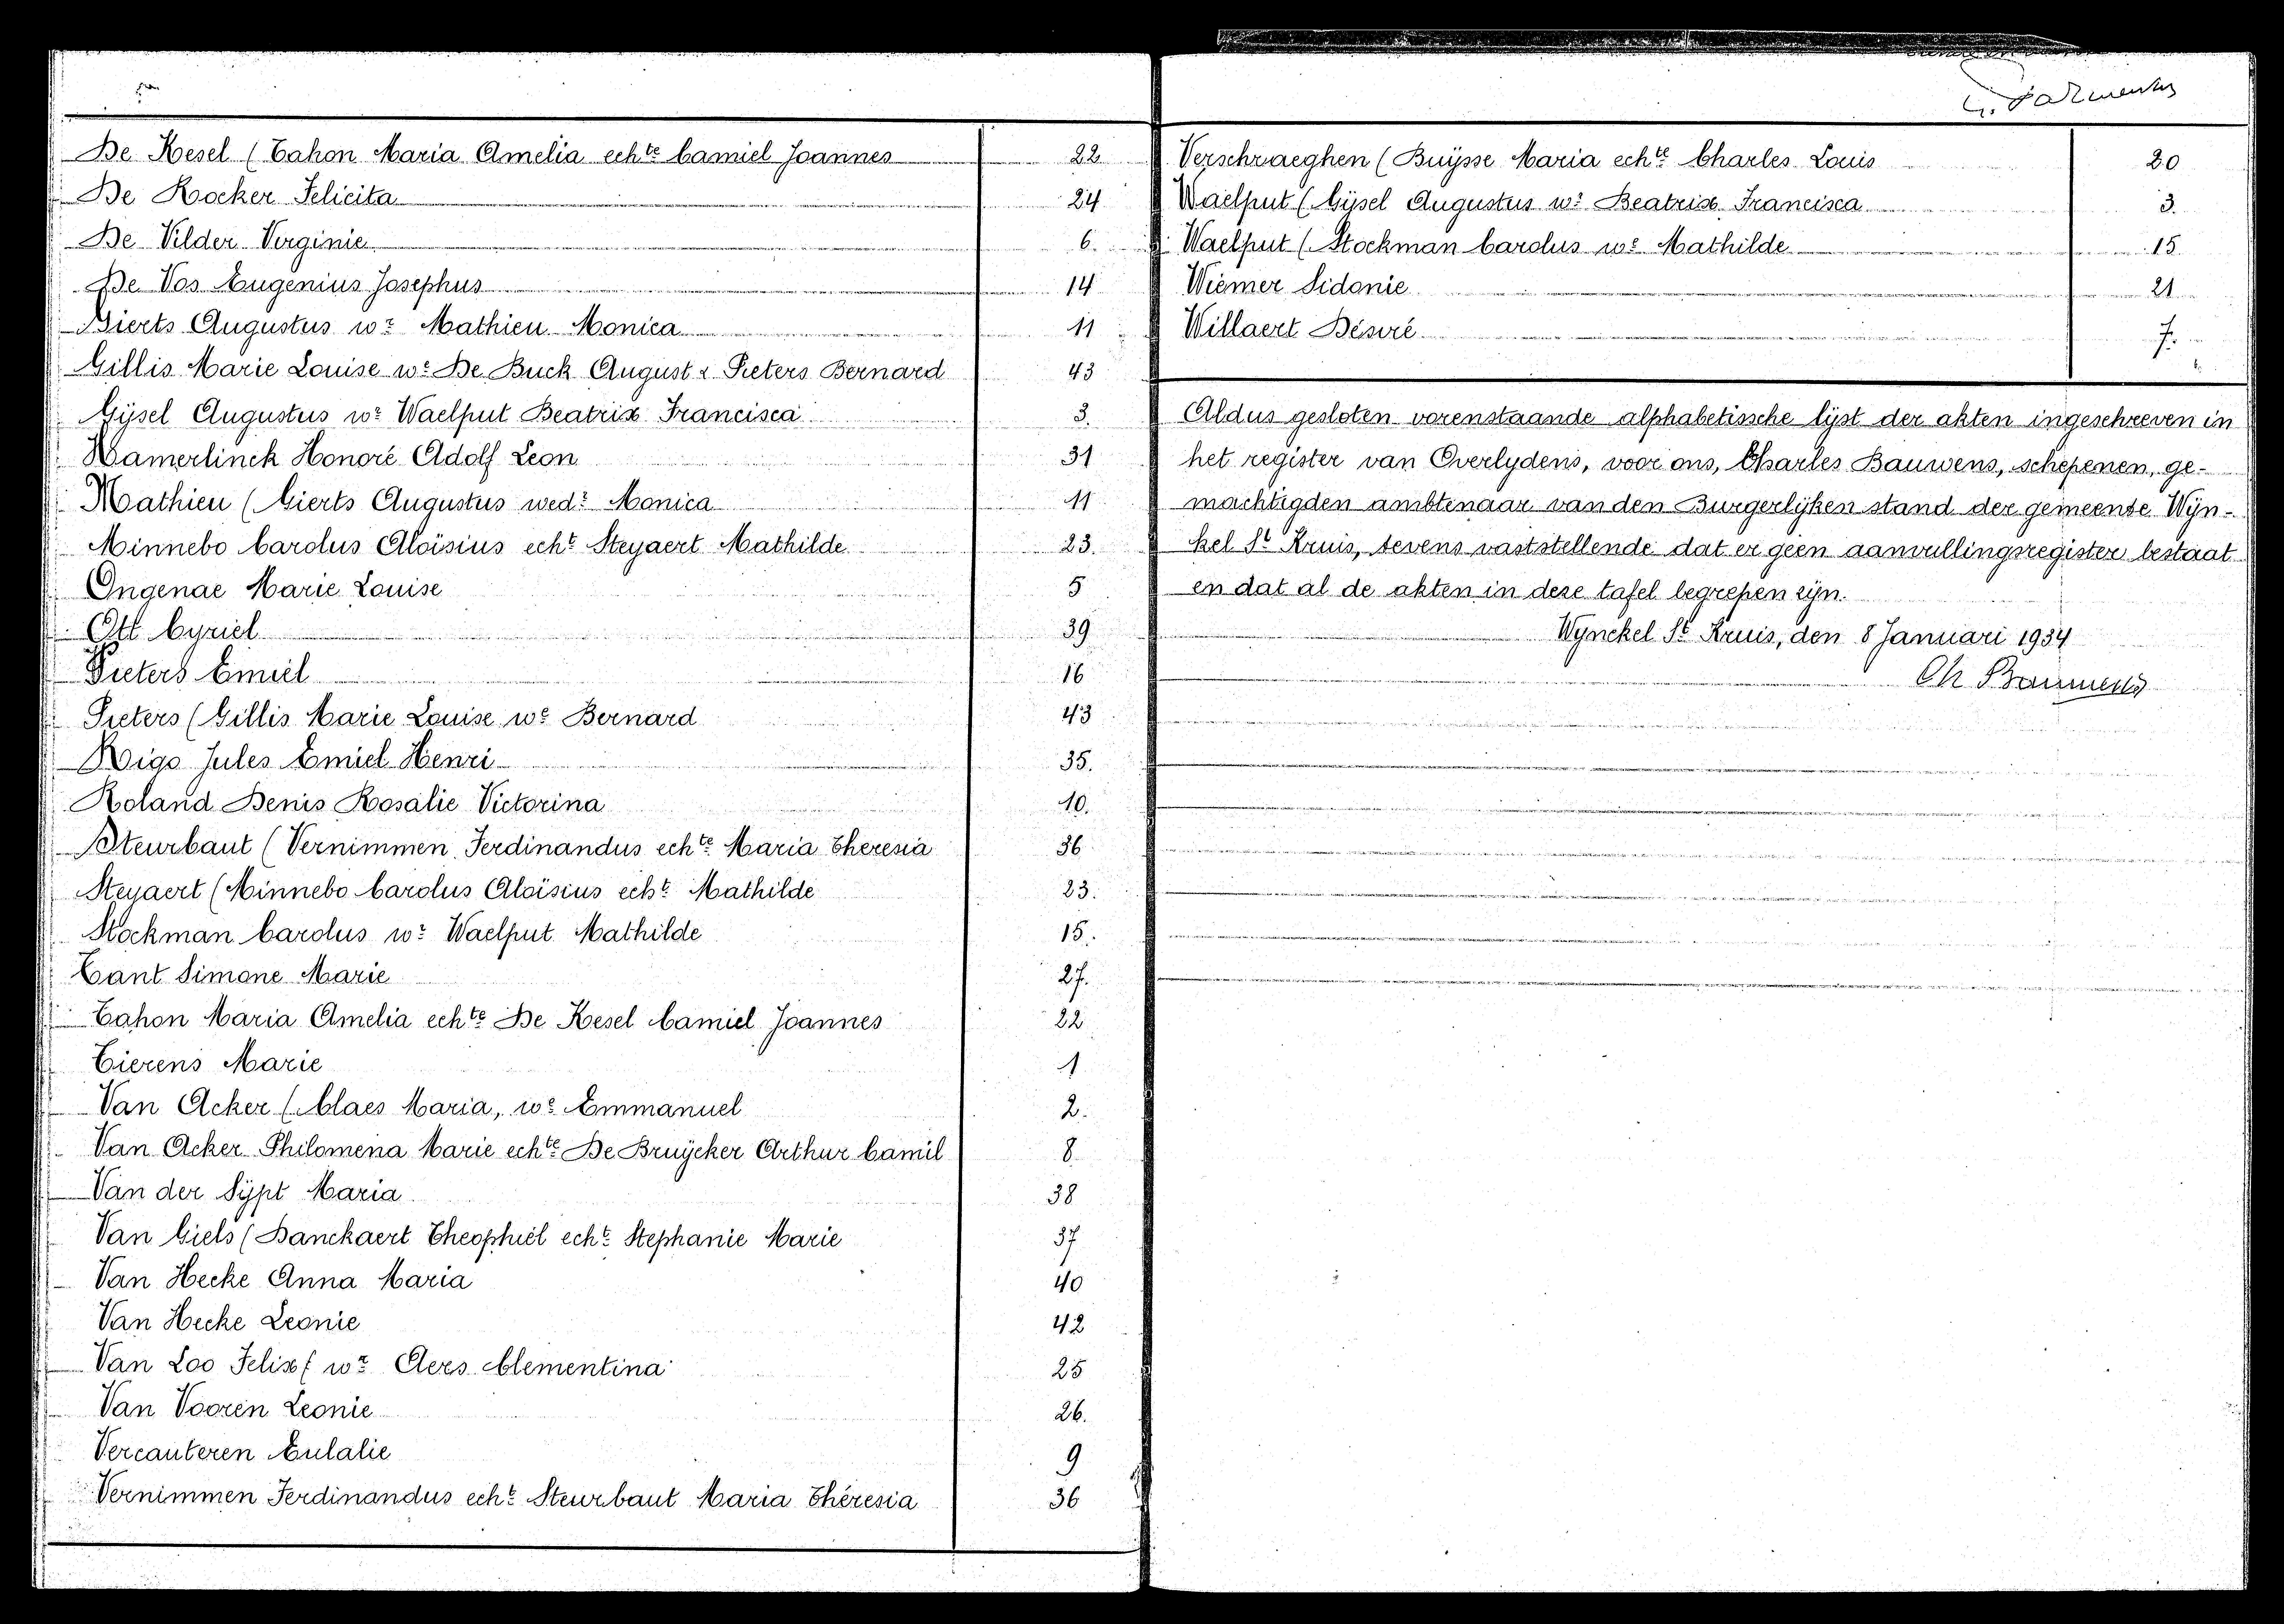 De Kesel (Tahon Maria Amelia echte Camiel Joannes 22
De Kocker Felicita 24
De Vilder Virginie 6.
De Vos Eugenius Josephus 14
Gierts Augustus wr Mathieu Monica 11
Gillis Marie Louise we De Buck August & Pieters Bernard 43
Gÿsel Augustus wr Waelput Beatrix Francisca 3.
Hamerlinck Honoré Adolf Leon 31
Mathieu (Gierts Augustus wedr Monica 11
Minnebo Carolus Aloïsius echt Steyaert Mathilde 23.
Ongenae Marie Louise 5
Ott Cyriel 39
Pieters Emiel 16
Pieters (Gillis Marie Louise we Bernard 43
Rigo Jules Emiel Henri 35.
Roland Denis Rosalie Victorina 10.
Steurbaut (Vernimmen Ferdinandus echte Maria Theresia 36
Steyaert (Minnebo Carolus Aloïsius echt Mathilde 23.
Stockman Carolus wr Waelput Mathilde 15.
Tant Simone Marie 27.
Tahon Maria Amelia echte De Kesel Camiel Joannes 22
Tierens Marie 1
Van Acker (Claes Maria, we Emmanuel 2.
Van Acker Philomena Marie echte De Bruÿcker Arthur Camil 8
Van der Sÿpt Maria 38
Van Giels (Banckaert Theophiel echt Stephanie Marie 37
Van Hecke Anna Maria 40
Van Hecke Leonie 42
Van Loo Felix ( wr Aers Clementina 25
Van Vooren Leonie 26.
Vercauteren Eulalie 9
Vernimmen Ferdinandus echt Steurbaut Maria Théresia 36
Verschraeghen (Buÿsse Maria echte Charles Louis 20
Waelput (Gÿsel Augustus wr Beatrix Francisca 3.
Waelput (Stockman Carolus wr Mathilde 15
Wiemer Sidonie 21
Willaert Désiré 7.
Aldus gesloten vorenstaande alphabetissche lÿst der akten ingeschreven in
het register van Overlydens, voor ons, Charles Bauwens, schepenen, ge-
machtigden ambtenaar van den Burgerlÿken stand der gemeente Wÿn-
kel St Kruis, tevens vaststellende dat er geen aanvullingsregister bestaat
en dat al de akten in deze tafel begrepen zÿn.
Wynckel St Kruis, den 8 Januari 1934
Ch Bauwens